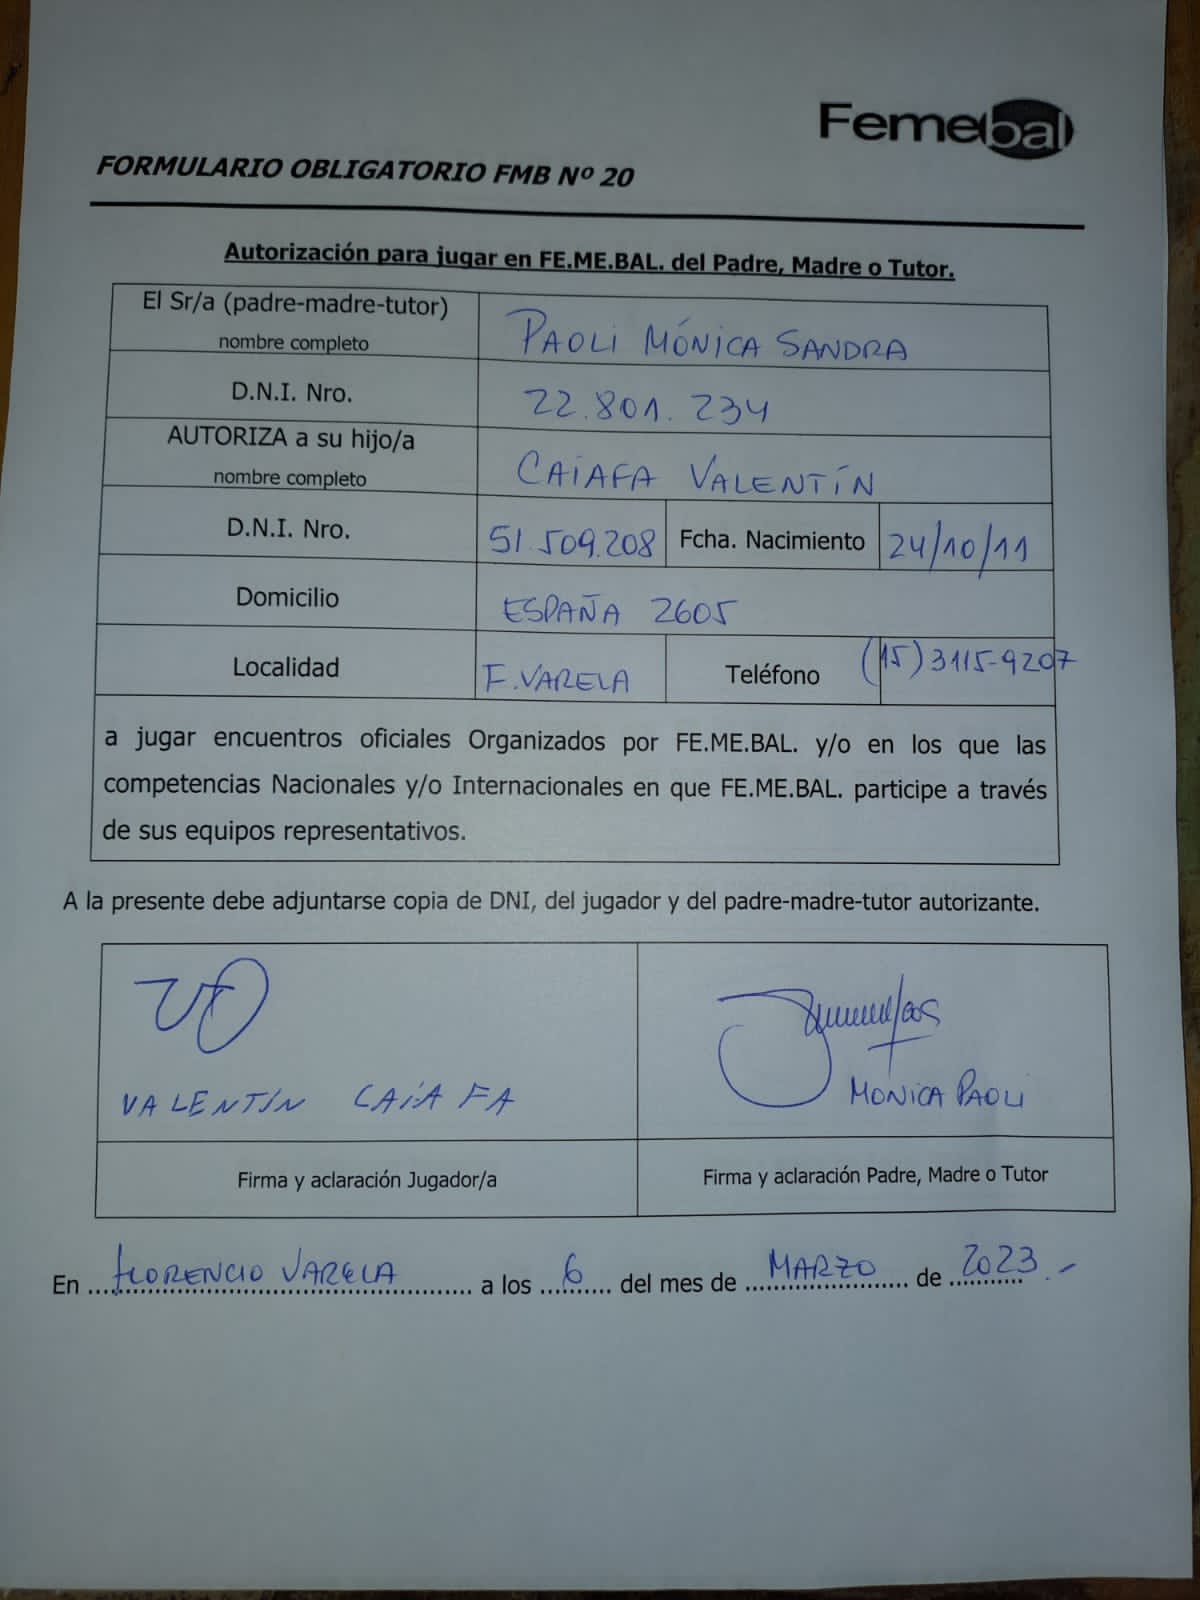 Femebal
FORMULARIO OBLIGATORIO FMB Nº 20
Autorización para jugar en FE.ME.BAL. del Padre, Madre o Tutor.
El Sr/a (padre-madre-tutor)
nombre completo
PAOLI MÓNICA SANDRA
D.N.I. Nro.
22.801.234
AUTORIZA a su hijo/a
nombre completo
CAIAFA VALENTÍN
D.N.I. Nro.
51.509.208
Fcha. Nacimiento
24/10/11
Domicilio
ESPAÑA 2605
Localidad
F.VARELA
Teléfono
(15)3115-9207
a jugar encuentros oficiales Organizados por FE.ME.BAL. y/o en los que las
competencias Nacionales y/o Internacionales en que FE.ME.BAL. participe a través
de sus equipos representativos.
A la presente debe adjuntarse copia de DNI, del jugador y del padre-madre-tutor autorizante.
VALENTIN CAIAFA
MONICA PAOLI
Firma y aclaración Jugador/a
Firma y aclaración Padre, Madre o Tutor
En FLORENCIO VARELA a los 6 del mes de MARZO de 2023.-